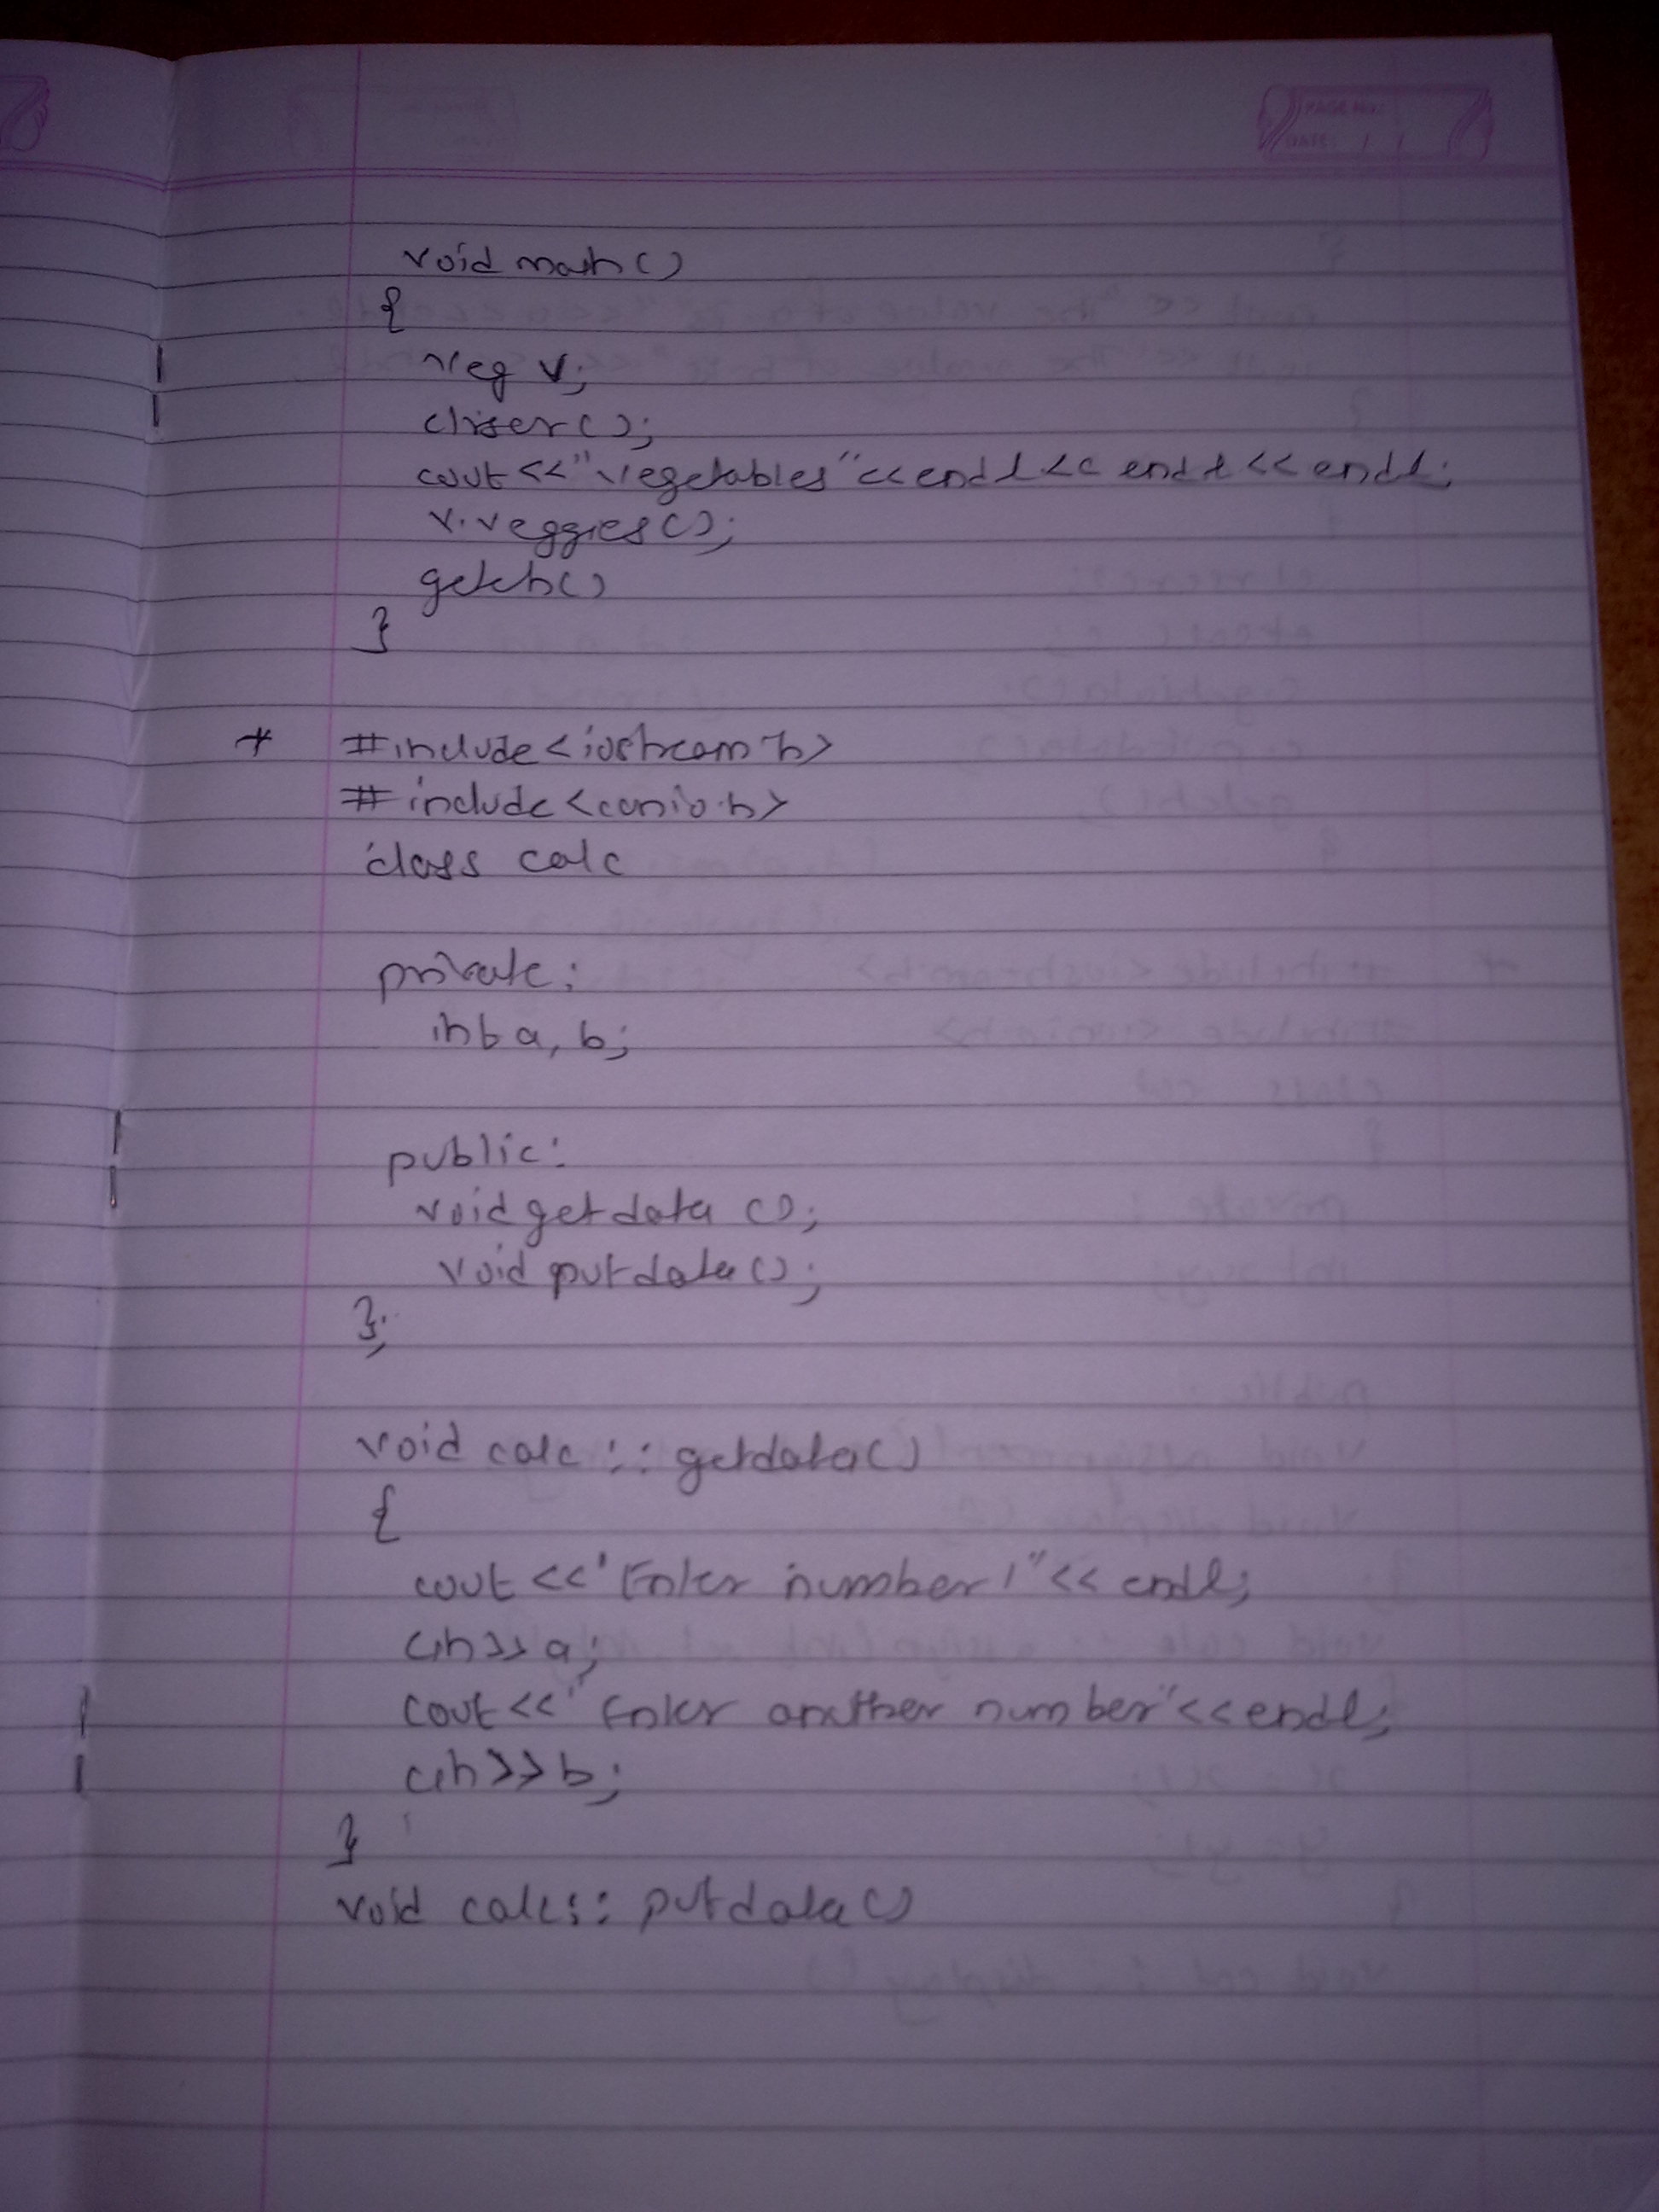 PAGE NO.
DATE: / /
void main()
{
veg v;
clrscr();
cout<<"Vegetables"<<endl<<endl<<endl;
v.veggies();
getch()
}
* #include<iostream.h>
#include<conio.h>
class calc
private:
int a, b;
public:
void getdata();
void putdata();
};
void calc::getdata()
{
cout<<"Enter number 1"<<endl;
cin>>a;
cout<<"Enter another number"<<endl;
cin>>b;
}
void calc::putdata()